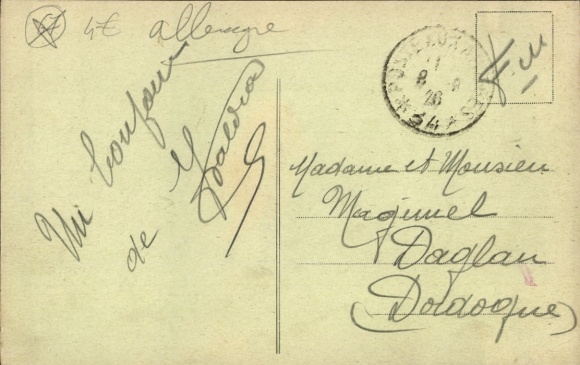 4€ allemagne
Un bonjour
de
POSTE AUX ARMEES
8
26
* 54 *
F M
Madame et Monsieur
Magimel
Daglan
(Dordogne)